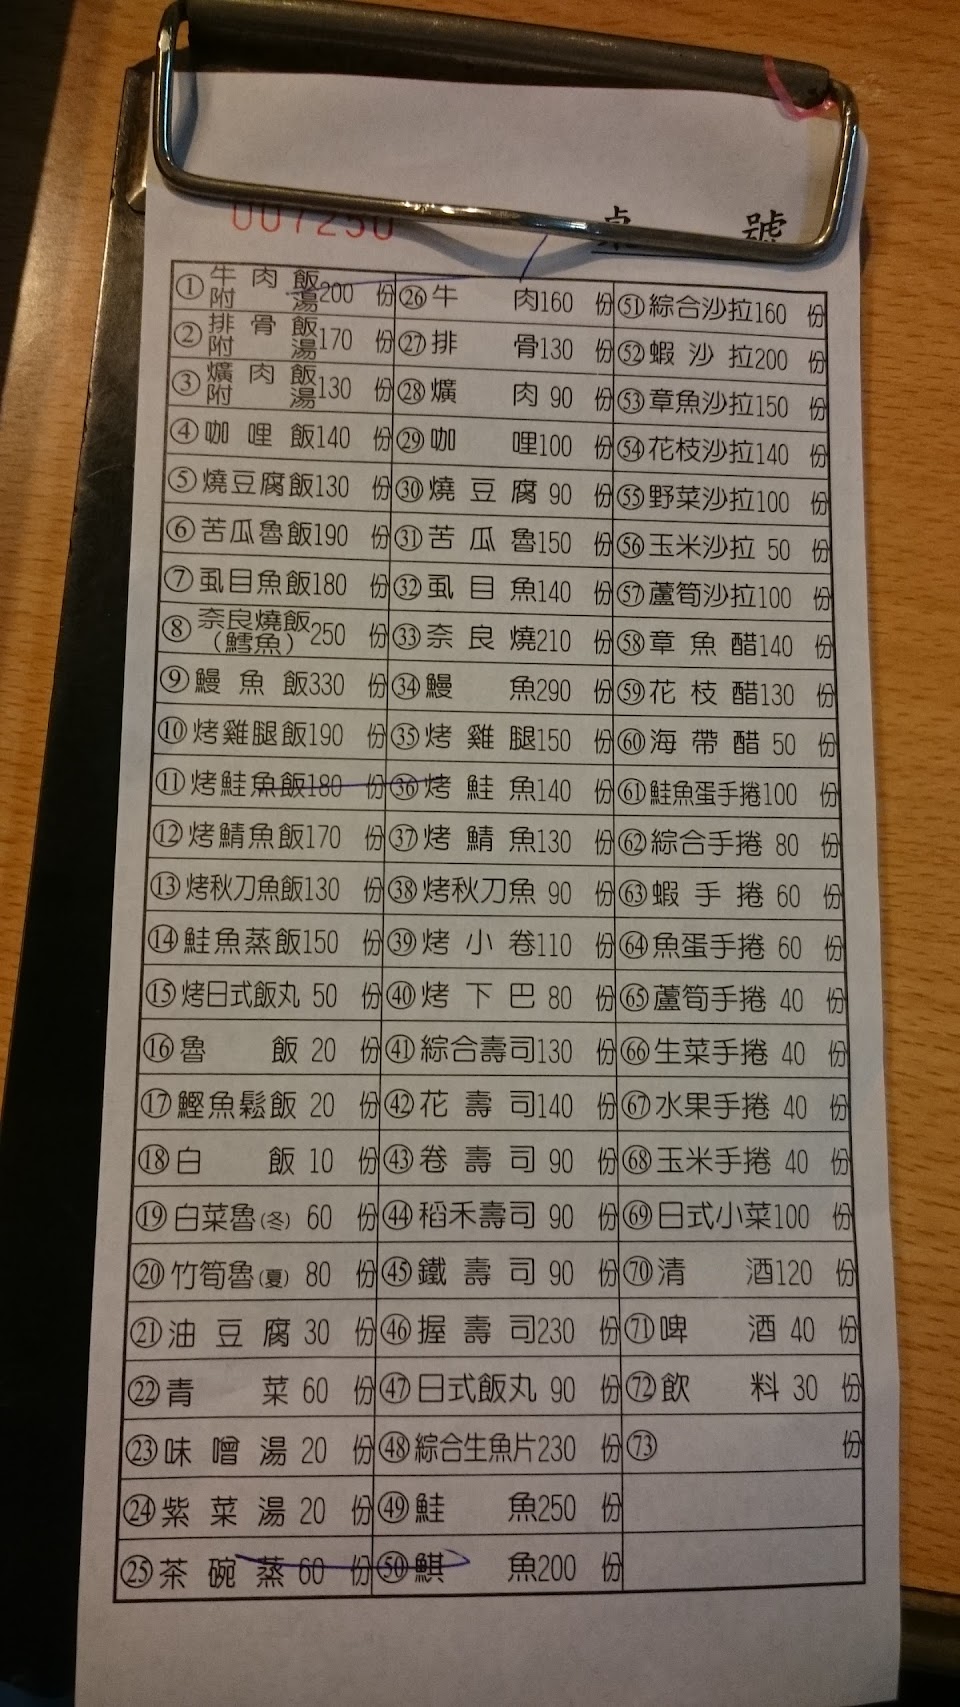 007250
桌 號
①牛肉飯附湯200 份 ㉖牛肉160 份 �51綜合沙拉160 份
②排骨飯附湯170 份 ㉗排骨130 份 52蝦沙拉200 份
③爌肉飯附湯130 份 ㉘爌肉 90 份 53章魚沙拉150 份
④咖哩飯140 份 ㉙咖哩100 份 54花枝沙拉140 份
⑤燒豆腐飯130 份 ㉚燒豆腐 90 份 55野菜沙拉100 份
⑥苦瓜魯飯190 份 ㉛苦瓜魯150 份 56玉米沙拉 50 份
⑦虱目魚飯180 份 ㉜虱目魚140 份 57蘆筍沙拉100 份
⑧奈良燒飯(鱈魚)250 份 ㉝奈良燒210 份 58章魚醋140 份
⑨鰻魚飯330 份 ㉞鰻魚290 份 59花枝醋130 份
⑩烤雞腿飯190 份 ㉟烤雞腿150 份 60海帶醋 50 份
⑪烤鮭魚飯180 份 ㊱烤鮭魚140 份 61鮭魚蛋手捲100 份
⑫烤鯖魚飯170 份 ㊲烤鯖魚130 份 62綜合手捲 80 份
⑬烤秋刀魚飯130 份 ㊳烤秋刀魚 90 份 63蝦手捲 60 份
⑭鮭魚蒸飯150 份 ㊴烤小卷110 份 64魚蛋手捲 60 份
⑮烤日式飯丸 50 份 ㊵烤下巴 80 份 65蘆筍手捲 40 份
⑯魯飯 20 份 ㊶綜合壽司130 份 66生菜手捲 40 份
⑰鰹魚鬆飯 20 份 ㊷花壽司140 份 67水果手捲 40 份
⑱白飯 10 份 ㊸卷壽司 90 份 68玉米手捲 40 份
⑲白菜魯(冬) 60 份 ㊹稻禾壽司 90 份 69日式小菜100 份
⑳竹筍魯(夏) 80 份 ㊺鐵壽司 90 份 70清酒120 份
㉑油豆腐 30 份 ㊻握壽司230 份 71啤酒 40 份
㉒青菜 60 份 ㊼日式飯丸 90 份 72飲料 30 份
㉓味噌湯 20 份 ㊽綜合生魚片230 份 73 份
㉔紫菜湯 20 份 ㊾鮭魚250 份
㉕茶碗蒸 60 份 ㊿鯕魚200 份